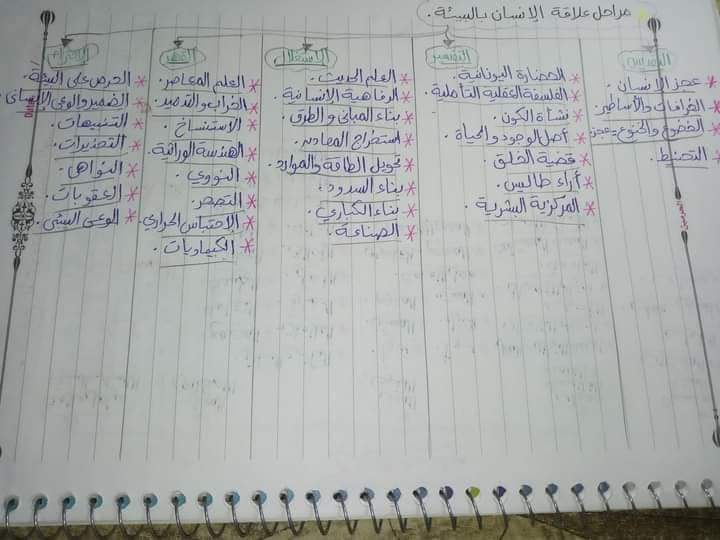 مراحل علاقة الإنسان بالبيئة.
التقديس
* عجز الإنسان.
* الخرافات والأساطير.
* الخضوع والخنوع
* التحنيط.
التفسير
* الحضارة اليونانية.
* الفلسفة العقلية التأملية.
* نشأة الكون.
* أصل الوجود والحياة.
* قضية الخلق.
* آراء طاليس.
* المركزية البشرية.
الاستغلال
* العلم الحديث.
* الرفاهية الإنسانية.
* بناء المباني والطرق.
* استخراج المعادن.
* تحويل الطاقة والموارد.
* بناء السدود.
* بناء الكباري.
* الصناعة.
القهر
* العلم المعاصر.
* الخراب والتدمير.
* الاستنساخ.
* الهندسة الوراثية.
* النووي.
* التصحر.
* الاحتباس الحراري.
* الكيماويات.
* الحرص على البيئة.
* الضمير والوعي الإنساني.
* التنبيهات.
* التحذيرات.
* النواهي.
* العقوبات.
* الوعي البيئي.